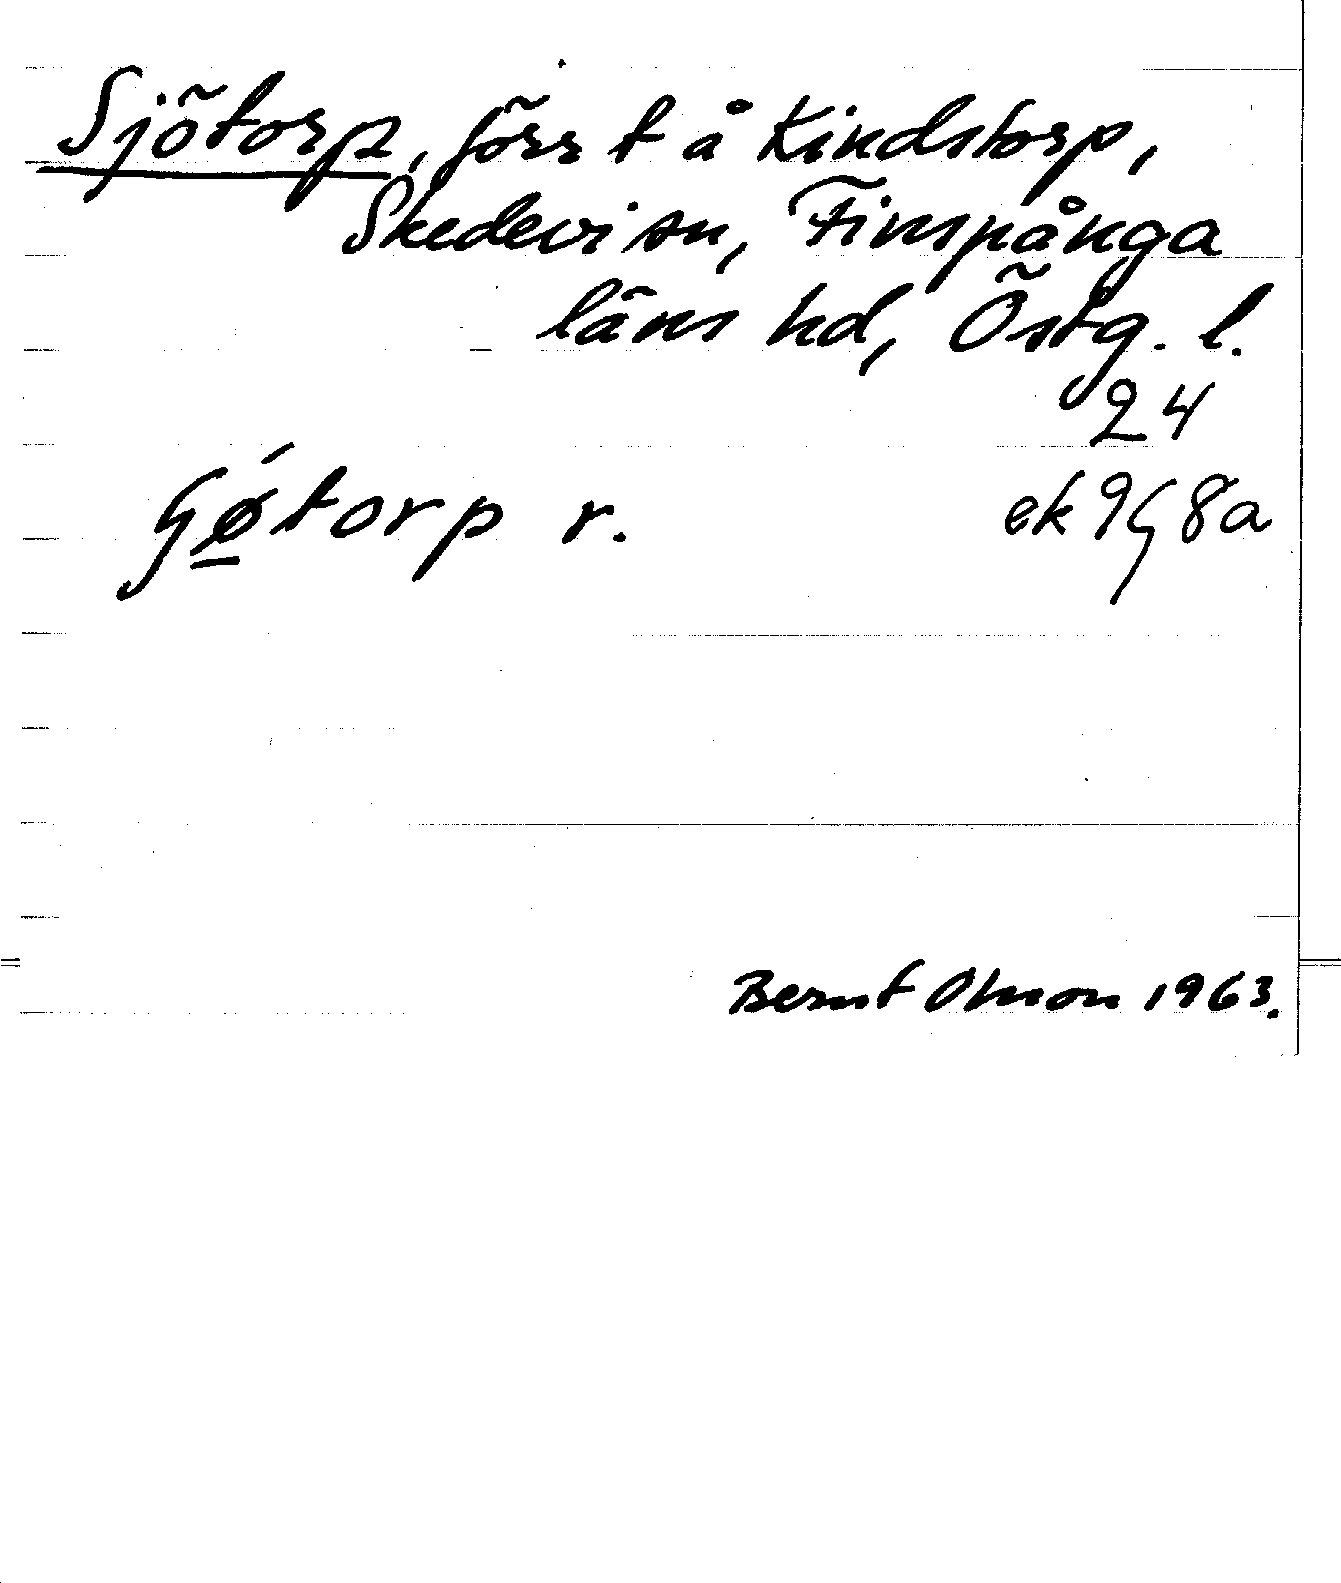 Sjötorp, förr t å Kindstorp,
Skedevi sn, Finspånga
läns hd, Östg. l.
24
ek 9G 8a
ɧǿ̲torp r.
Bernt Olsson 1963.